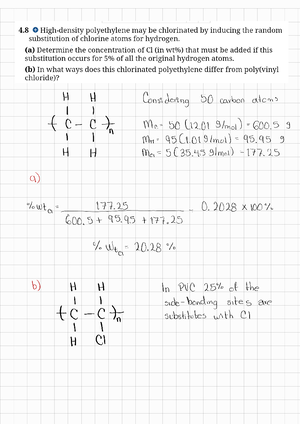 4.8 High-density polyethylene may be chlorinated by inducing the random
substitution of chlorine atoms for hydrogen.
(a) Determine the concentration of Cl (in wt%) that must be added if this
substitution occurs for 5% of all the original hydrogen atoms.
(b) In what ways does this chlorinated polyethylene differ from poly(vinyl
chloride)?
H H
C - C n
H H
Considering 50 carbon atoms
mc = 50 (12.01 g/mol) = 600.5 g
mH = 95 (1.01 g/mol) = 95.95 g
mCl = 5 (35.45 g/mol) = 177.25
a)
% wt Cl = 177.25 = 0.2028 x 100%
600.5 + 95.95 + 177.25
% wt Cl = 20.28 %
b)
H H
C - C n
H Cl
In PVC 25% of the
side-bonding sites are
substitutes with Cl